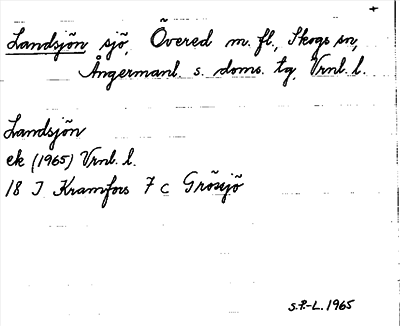 Landsjön sjö, Övered m. fl., Skogs sn,
Ångermanl. s. doms. tg, Vrnl. l.
Landsjön
ek (1965) Vrnl. l.
18 I Kramfors 7 c Grössjö
S.P.-L. 1965